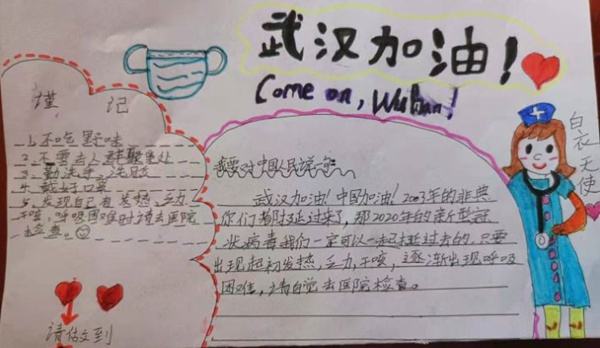 武汉加油！
Come on, Wuhan!
谨记
1、不吃野味
2、不要去人群聚集处
3、勤洗手、洗澡
4、戴好口罩
5、发现自己有发热、乏力
干咳，呼吸困难时请去医院
检查。
请做到
我要对中国人民说
武汉加油！中国加油！2003年的非典
你们都挺过来了，那2020年的新型冠
状病毒我们一定可以一起挺过去的，只要
出现起初发热，乏力，干咳，逐渐出现呼吸
困难，请自觉去医院检查。
白衣天使